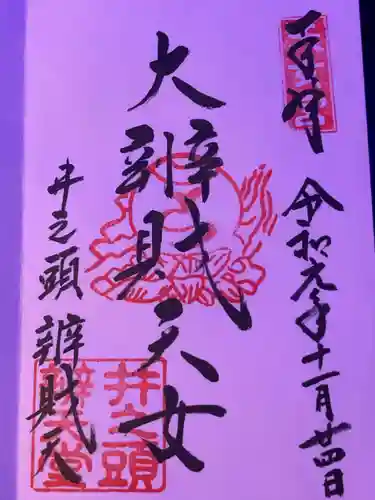 奉拝
令和元年十一月廿四日
大辨財天女
井之頭 辨財天
井之頭
辨天堂